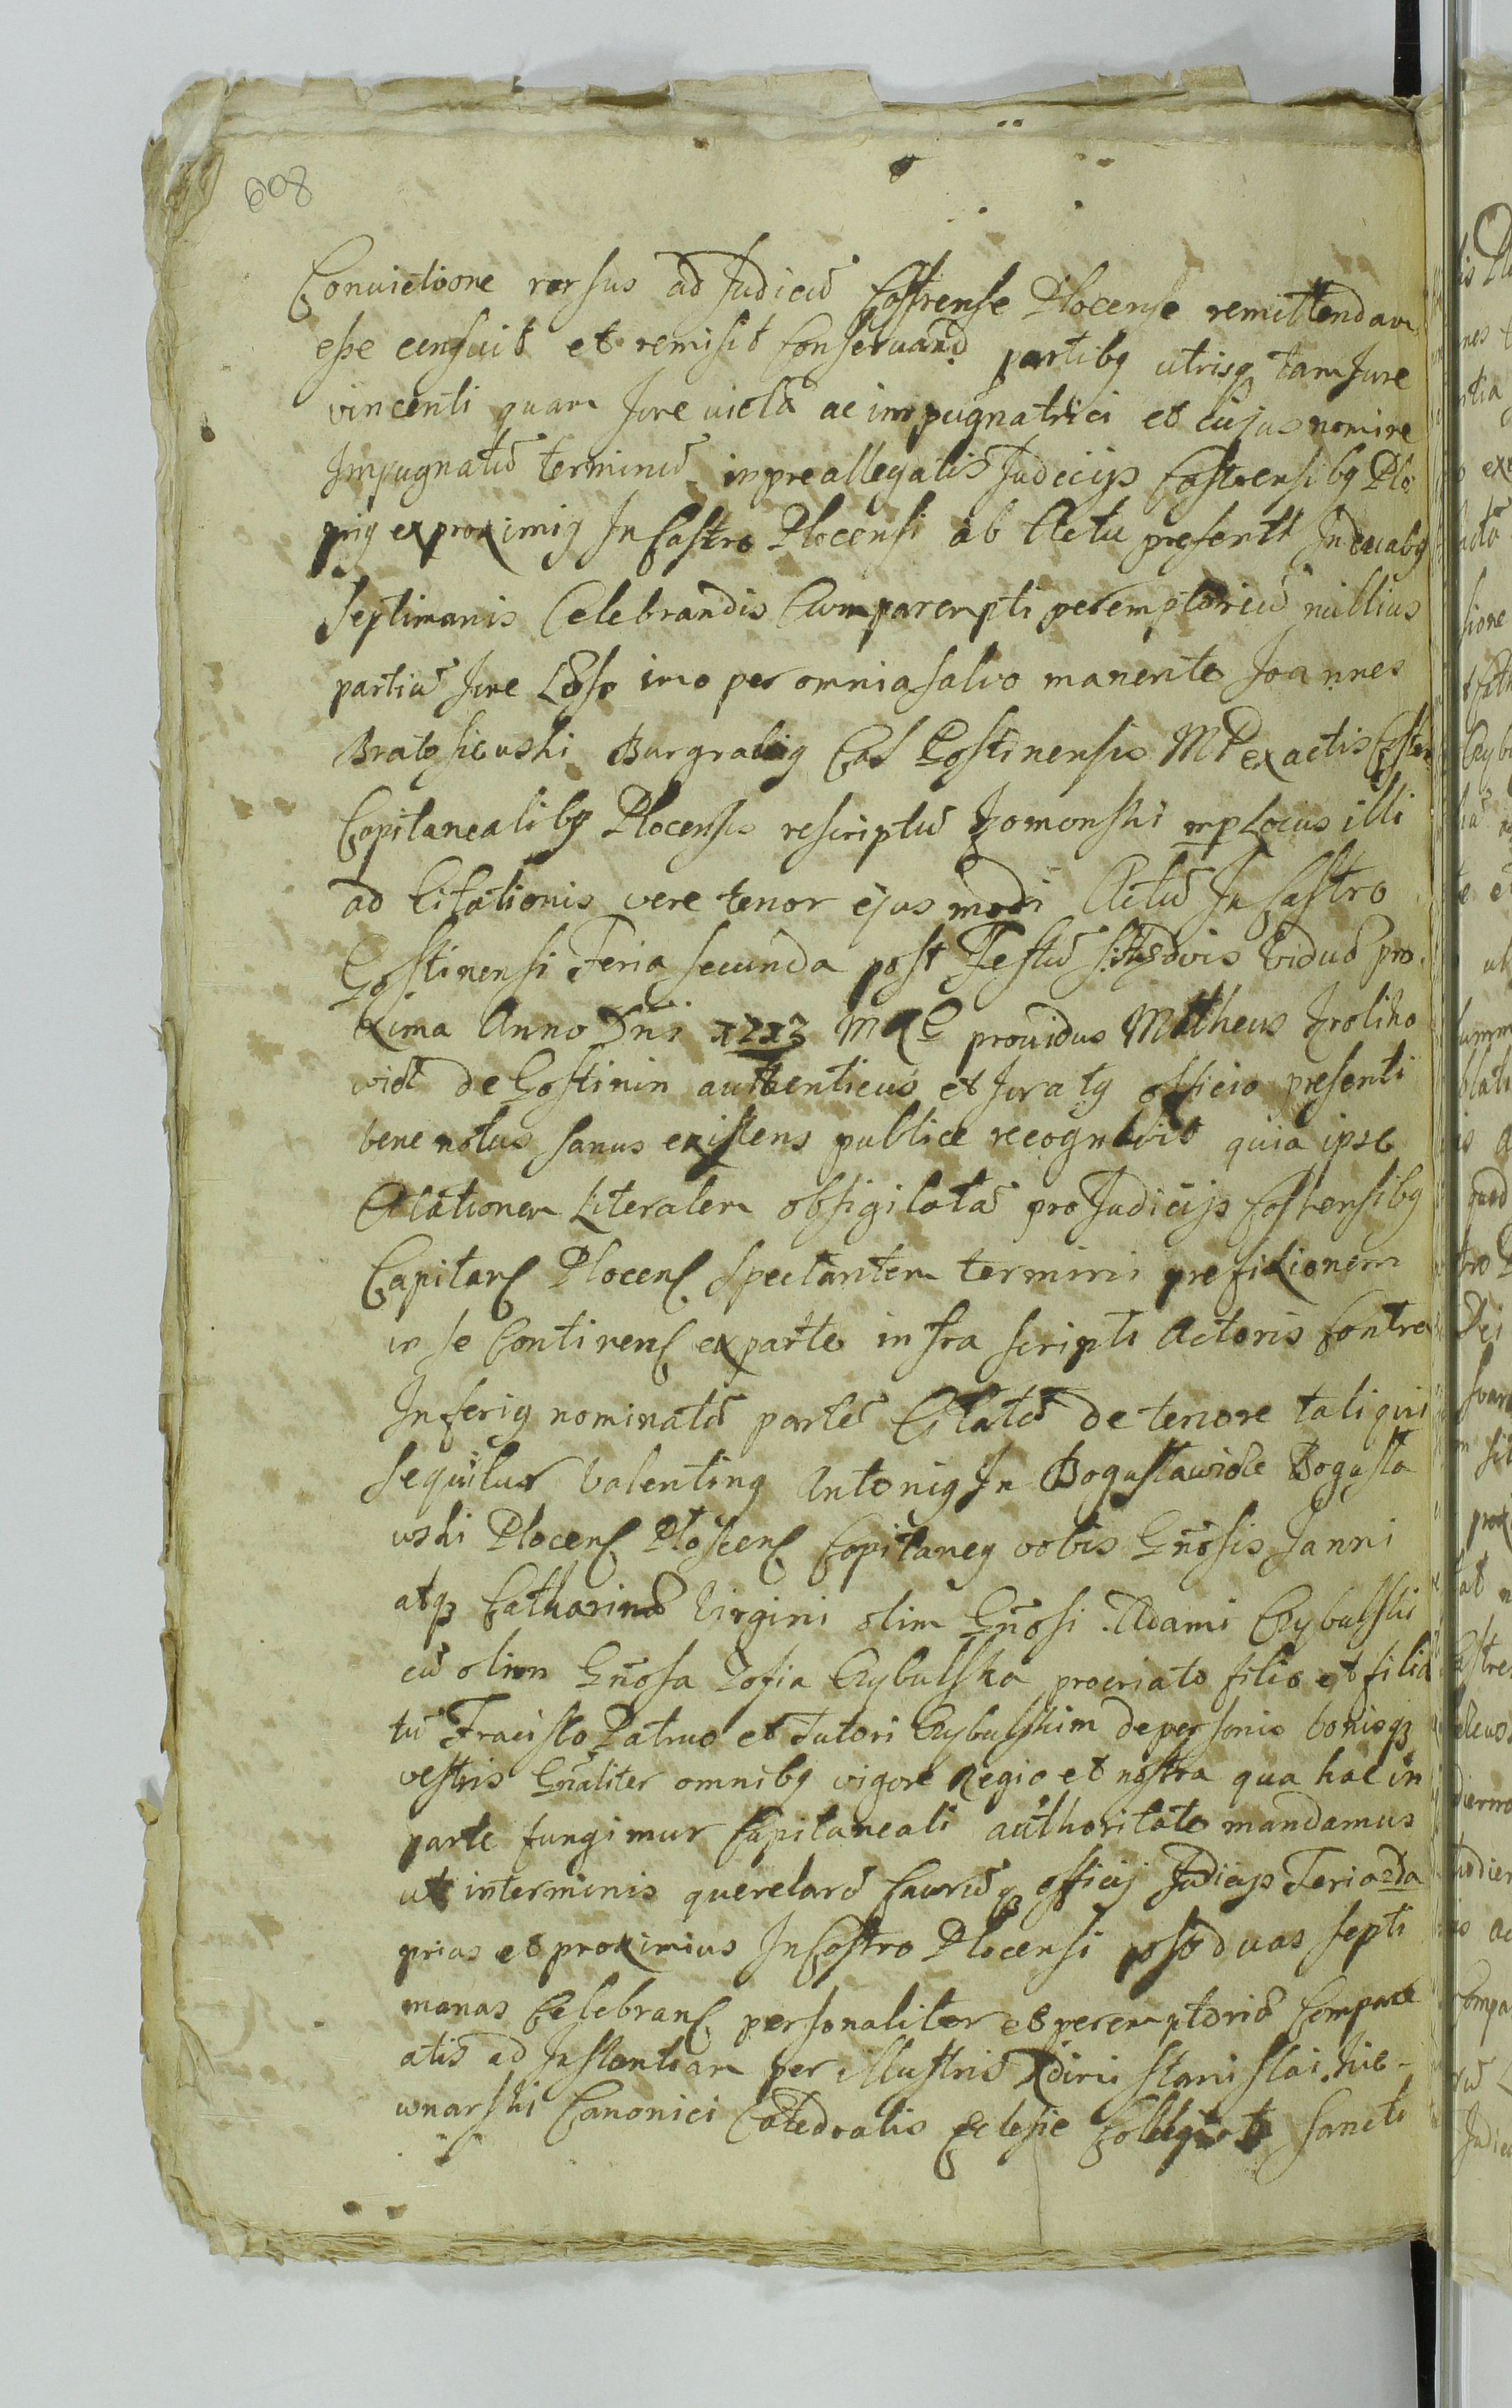 608
Convictione rursus ad Judiciũ Castrense Plocense remittendam
eße censuit et remisit Conseruand partibq utrisq tam Jure
vincenti quam Jure victã ac impugnatrici et cujus nomine
Impugnatũ terminũ in preallegatis Judicijs Castrensibq Plo:
priq et proximiq In Castro Plocensi ab Actu presenti In duabq
septimanis Celebrandis Comparenpti peremptoriũ nullius
partiũ Jure Lęso imo per omnia salvo manente Joannes
Burgrabiq Cas Gostinensis MP ex actis Castren
Capitanealibq Plocensis rescriptũ mp Locus illi
ad Citationis vere tenor ejus modi Actũ In Castro
Gostinensi Feria secunda post Festũ S. Hedvis Viduæ pro
xima Anno Dñi 1713 prouidus Matheus Kroliko
vict de Gostinin authenticus et Juratq officio presenti
bene notus sanus existens publice recognovit quia ipse
Citationem Literalem obsigilatã pro Judicijs Castrensibq
Capitan Plocen spectantem termini prefixionem
in se Continen ex parte infra scripti Actoris Contra
Inferiq nominatã partẽ Citatã de tenore tali qui
sequitur Valentinq Antoniq In Bogusławice Bogusła
wski Plocen Capitaneq vobis Gñosis Janni
atqz Catharinæ Virgini olim Gñosi Adami Cybulski
cũ olim Gñosa Zofia Cybulska procriato filio et filiã
tũ Patruo et Tutori Cybulskim de personis bonisqz
vestris Gñaliter omnibq vigore Regio et nostra qua hac in
parte fungimur Capitaneali authoritate mandamus
ut in terminis querelarũ Causarũqz officij Judicijs Feria 2da
prius et proximius In Castro Plocensi post duas septi
manas Celebran personaliter et peremptoriẽ Compare
atis ad Instantiam per illustris Rdimi Stanislai Nie-
wnarski Canonici Catedralis Eclesie Sancti